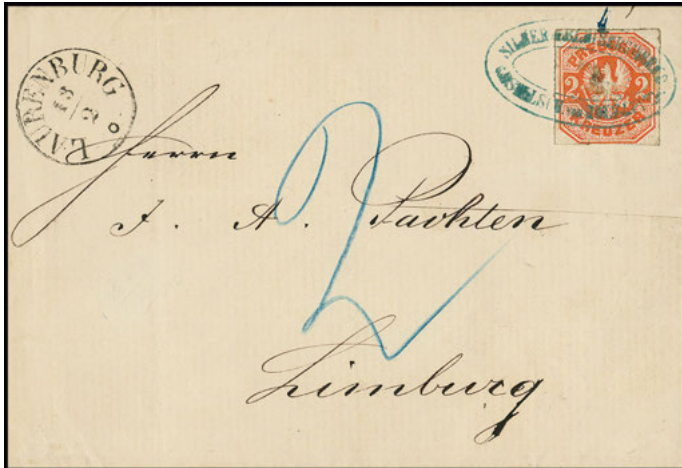 LAURENBURG
13/2
PREUSSEN
2 2
KREUZER
Herrn
J. A. Pachten
2
Limburg